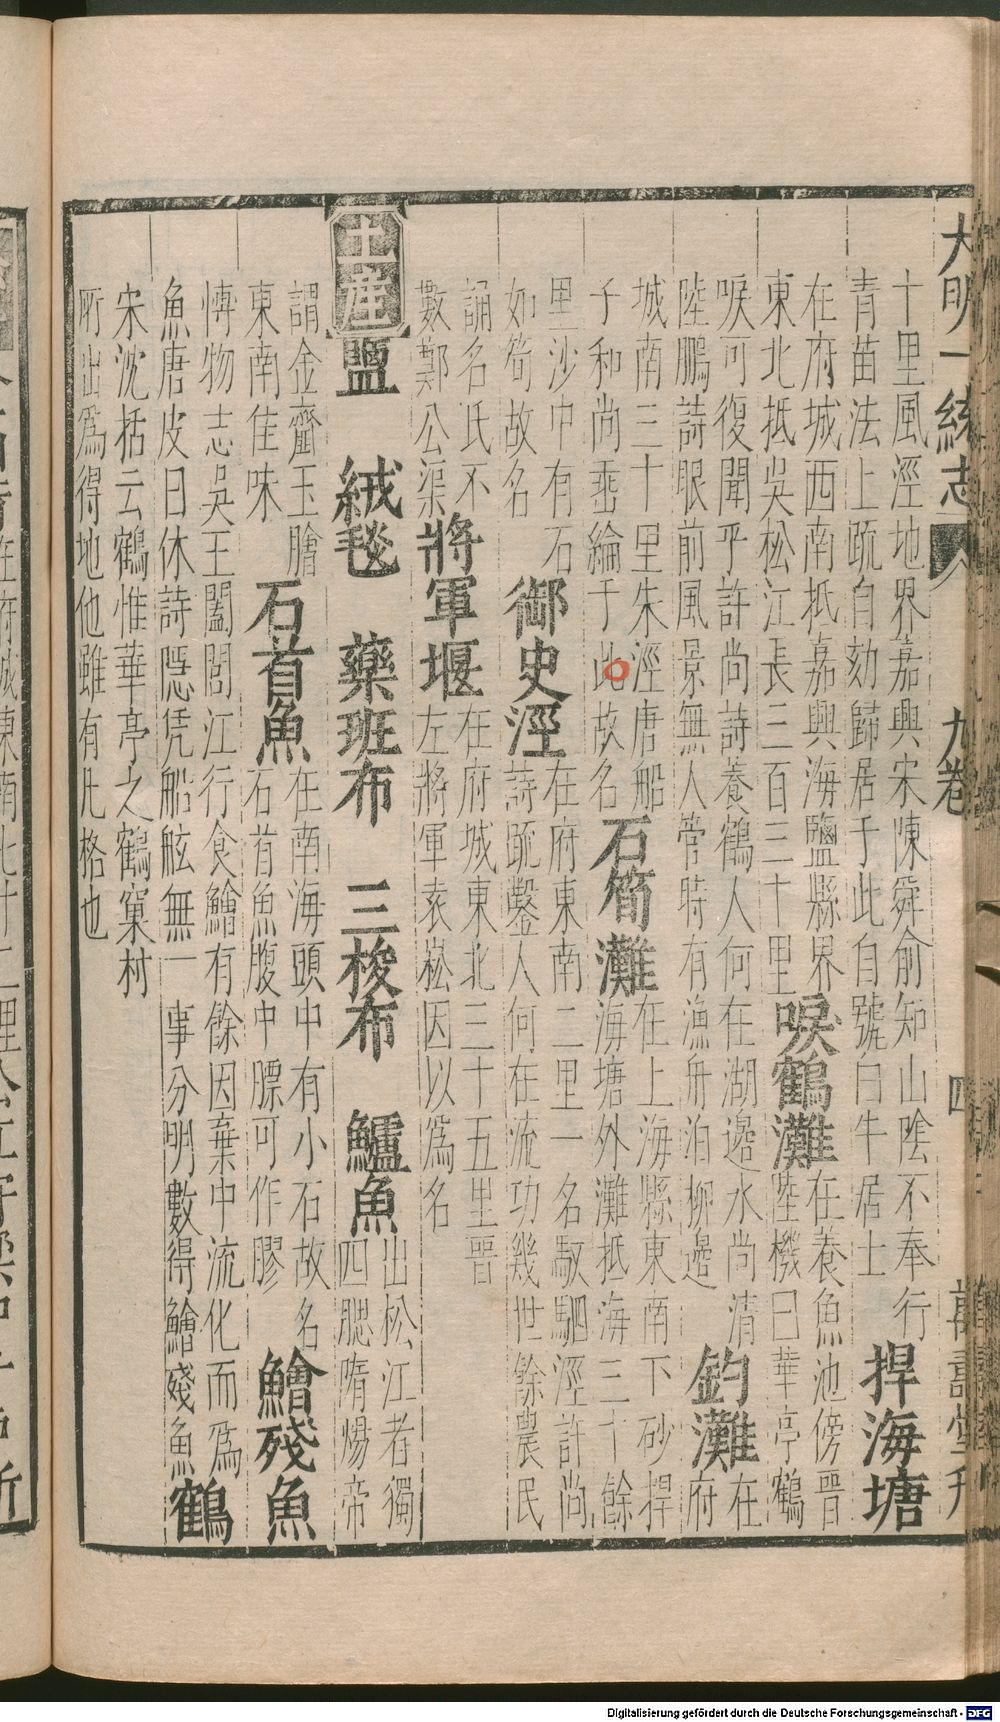 大明一統志 九卷 四 萬壽堂刋
十里風涇地界嘉興宋陳舜俞知山陰不奉行
青苗法上疏自劾歸居于此自號白牛居士
捍海塘
在府城西南抵嘉興海鹽縣界
東北抵吳松江長三百三十里
唳鶴灘
在養魚池傍晉
陸機曰華亭鶴
唳可復聞乎許尚詩養鶴人何在湖邊水尚清
陸鵬詩眼前風景無人管時有漁舟泊柳邊
釣灘
在府
城南三十里朱涇唐船
子和尚垂綸于此故名
石筍灘
在上海縣東南下砂捍
海塘外灘抵海三十餘
里沙中有石
如筍故名
御史涇
在府東南二里一名馭駟涇許尚
詩疏鑿人何在流功幾世餘農民
誦名氏不
數鄭公渠
將軍堰
在府城東北三十五里晉
左將軍袁崧因以為名
土産
鹽 絨毯 藥班布 三梭布 鱸魚
出松江者獨
四腮隋煬帝
謂金虀玉膾
東南佳味
石首魚
在南海頭中有小石故名
石首魚腹中膘可作膠
鱠殘魚
博物志吳王闔閭江行食鱠有餘因棄中流化而為
魚唐皮日休詩隱凭船舷無一事分明數得鱠殘魚
鶴
宋沈括云鶴惟華亭之鶴窠村
所出為得地他雖有凡格也
Digitalisierung gefördert durch die Deutsche Forschungsgemeinschaft - DFG